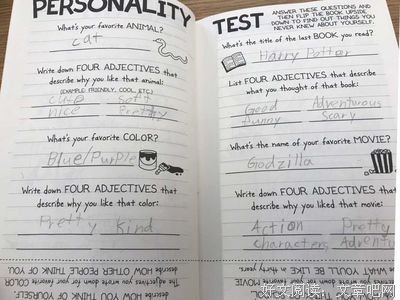 PERSONALITY
What's your favorite ANIMAL?
cat
Write down FOUR ADJECTIVES that
describe why you like that animal:
(EXAMPLE: FRIENDLY, COOL, ETC.)
cute soft
nice Pretty
What's your favorite COLOR?
Blue/Purple
Write down FOUR ADJECTIVES that
describe why you like that color:
Pretty kind
The adjectives you wrote down for your favorite COLOR
describe HOW YOU THINK OF YOURSELF.
describe HOW OTHER PEOPLE THINK OF YOU.
TEST
ANSWER THESE QUESTIONS AND
THEN FLIP THE BOOK UPSIDE
DOWN TO FIND OUT THINGS YOU
NEVER KNEW ABOUT YOURSELF.
What's the title of the last BOOK you read?
Harry Potter
List FOUR ADJECTIVES that describe
what you thought of that book:
Good Adventurous
funny Scary
What's the name of your favorite MOVIE?
Godzilla
Write down FOUR ADJECTIVES that
describe why you liked that movie:
Action Pretty
characters Adventu
WHAT YOU'LL BE LIKE in thirty years.
MOVIE
The adjectives you wrote down for your favorite
好文阅读，文章吧网